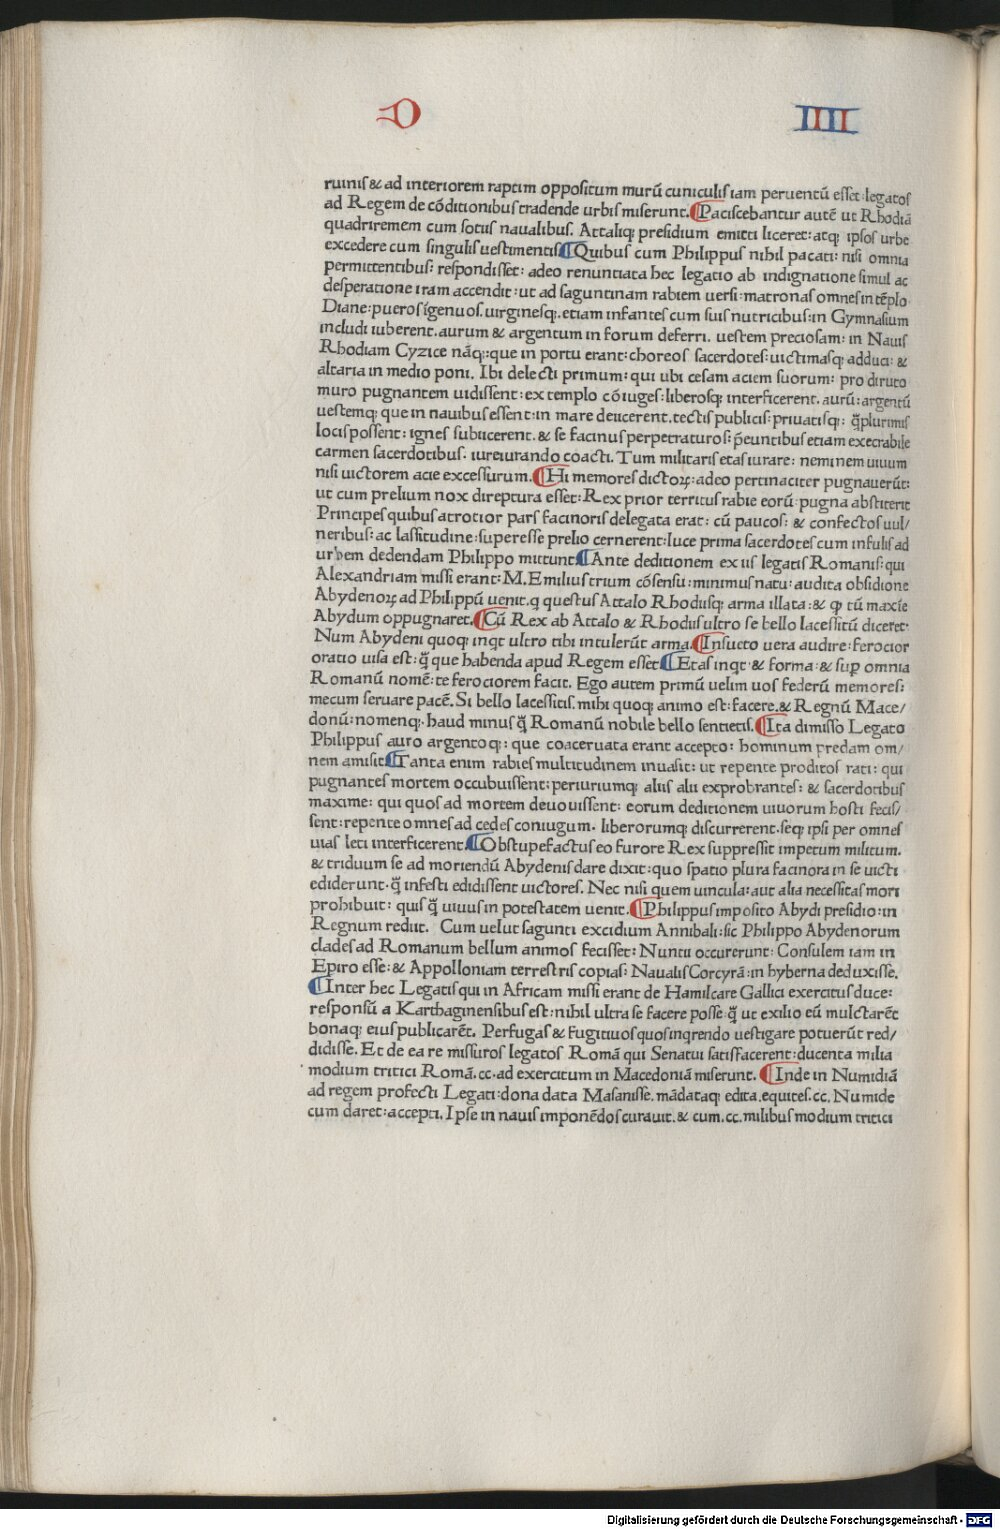 D IIII
ruinis & ad interiorem raptim oppositum murũ cuniculis iam peruentũ esset: legatos
ad Regem de cõditionibus tradende urbis miserunt. ¶Paciscebantur autẽ ut Rhodiã
quadriremem cum sotiis naualibus. Attaliq; presidium emitti liceret: atq; ipsos urbe
excedere cum singulis uestimentis ¶Quibus cum Philippus nihil pacati: nisi omnia
permittentibus: respondisset: adeo renuntiata hec legatio ab indignatione simul ac
desperatione iram accendit: ut ad saguntinam rabiem uersi: matronas omnes in tẽplo
Diane: pueros ĩgenuos. uirginesq;. etiam infantes cum suis nutricibus: in Gymnasium
includi iuberent. aurum & argentum in forum deferri. uestem preciosam: in Nauis
Rhodiam Cyzice nãq;: que in portu erant: choreos sacerdotes: uictimasq; adduci: &
altaria in medio poni. Ibi delecti primum: qui ubi cesam aciem suorum: pro diruto
muro pugnantem uidissent: ex templo cõiuges: liberosq; interficerent. aurũ: argentũ
uestemq; que in nauibus essent: in mare deiicerent. tectis publicis: priuatisq;: q̃plurimis
locis possent: ignes subiicerent. & se facinus perpetraturos: p̃euntibus etiam execrabile
carmen sacerdotibus. iureiurando coacti. Tum militaris etas iurare: neminem uiuum
nisi uictorem acie excessurum. ¶Hi memores dictoꝝ: adeo pertinaciter pugnauerũt:
ut cum prelium nox direptura esset: Rex prior territus rabie eorũ: pugna abstiterit
Principes quibus atrocior pars facinoris delegata erat: cũ paucos: & confectos uul/
neribus: ac lassitudine: superesse prelio cernerent: luce prima sacerdotes cum infulis ad
urbem dedendam Philippo mittunt ¶Ante deditionem ex iis legatis Romanis: qui
Alexandriam missi erant: M. Emilius trium cõsensu: minimus natu: audita obsidione
Abydenoꝝ ad Philippũ uenit. q questus Attalo Rhodiisq; arma illata: & ꝙ tũ maxĩe
Abydum oppugnaret. ¶Cũ Rex ab Attalo & Rhodiis ultro se bello lacessitũ diceret.
Num Abydeni quoq; inqt ultro tibi intulerũt arma. ¶Insueto uera audire: ferocior
oratio uisa est: q̃ que habenda apud Regem esset ¶Etas inqt: & forma: & suꝑ omnia
Romanũ nomẽ: te ferociorem facit. Ego autem primũ uelim uos federũ memores:
mecum seruare pacẽ. Si bello lacessitis. mihi quoq; animo est: facere. & Regnũ Mace/
donũ: nomenq;. haud minus q̃ Romanũ nobile bello sentietis. ¶Ita dimisso Legato
Philippus auro argentoq;: que coaceruata erant accepto: hominum predam om/
nem amisit ¶Tanta enim rabies multitudinem inuasit: ut repente proditos rati: qui
pugnantes mortem occubuissent: periuriumq; aliis alii exprobrantes: & sacerdotibus
maxime: qui quos ad mortem deuouissent: eorum deditionem uiuorum hosti fecis/
sent: repente omnes ad cedes coniugum. liberorumq; discurrerent. seq; ipsi per omnes
uias leti interficerent. ¶Obstupefactus eo furore Rex suppressit impetum militum.
& triduum se ad moriendũ Abydenis dare dixit: quo spatio plura facinora in se uicti
ediderunt. q̃ infesti edidissent uictores. Nec nisi quem uincula: aut alia necessitas mori
prohibuit: quis q̃ uiuus in potestatem uenit. ¶Philippus imposito Abydi presidio: in
Regnum rediit. Cum uelut sagunti excidium Annibali: sic Philippo Abydenorum
clades ad Romanum bellum animos fecisset: Nuntii occurerunt: Consulem iam in
Epiro esse: & Appolloniam terrestris copias: Naualis Corcyrã: in hyberna deduxisse.
¶Inter hec Legatis qui in Africam missi erant de Hamilcare Gallici exercitus duce:
responsũ a Karthaginensibus est: nihil ultra se facere posse: q̃ ut exilio eũ mulctarẽt
bonaq; eius publicarẽt. Perfugas & fugitiuos quos inqrendo uestigare potuerũt red/
didisse. Et de ea re missuros legatos Romã qui Senatui satisfacerent: ducenta milia
modium tritici Romã. cc. ad exercitum in Macedoniã miserunt. ¶Inde in Numidiã
ad regem profecti Legati: dona data Masanisse. mãdataq; edita. equites. cc. Numide
cum daret: accepti. Ipse in nauis imponẽdos curauit. & cum. cc. milibus modium tritici
Digitalisierung gefördert durch die Deutsche Forschungsgemeinschaft - DFG